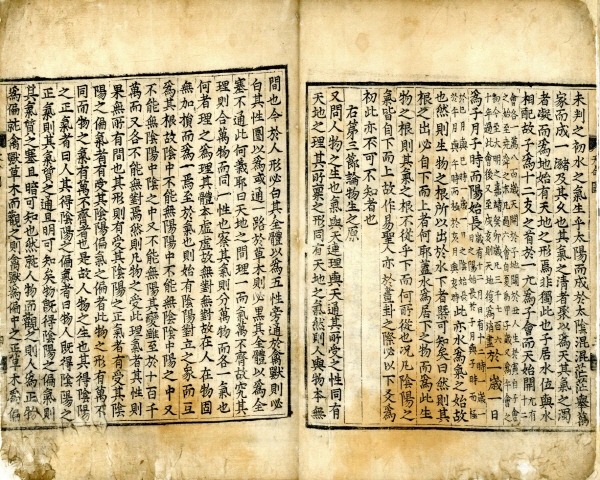 未判之初水之氣生乎太陽而成於太陰混混茫茫與萬
家而成一滃及其久也其氣之清者聚以為天其氣之濁
者凝而為地始有天地之形焉非獨此也子居水位與水
相配故子為十二支之首於一元為子會而天始開
於一歲一日
為子月子時而陽始長
此亦水為氣之始故
也然則生物之根所以出於水下者槩可知矣曰然則其
根之出必自下而上者何耶蓋水為居下之物而萬此上
物之根則其氣之根不從乎下而何所從也况凡陰陽之
氣皆自下而上故作易聖人亦於畫卦之際必以下爻為
初此亦不可不知者也
右第三節論物生之原
又問人物之生也氣與天通理與天通其所受之性同有
天地之理其所禀之形同有天地之氣然則人與物本無
間也今於人形必白其全體以為五性旁通於禽獸則必
白其性圈以為或通一路於草木則必黑其全體以為全
塞不通此何義耶曰天地之間理一而氣萬不齊故究其
理則合萬物而同一性也察其氣則分萬物而各一氣也
何者理之為理其體本虛虛故無對無對故在人在物固
無加損而為一焉至於氣也則始有陰陽對立之象而互
為其根故陰中不能無陽陽中不能無陰陰中陽之中又
不能無陰陽中陰之中又不能無陽其變雖至於十百千
萬而又各不能無對焉然則凡物之受此理氣者其性則
果無所有間也其形則有受其陰陽之正氣者有受其陰
陽之偏氣者有受其陰陽偏氣之偏者此物之形有萬不
同而物之氣有萬不齊者也是故人物之生也其得陰陽
之正氣者曰人其得陰陽之偏氣者曰物人既得陰陽之
正氣則其氣質之通且明可知矣物既得陰陽之偏氣則
其氣質之塞且暗可知也然就人物而觀之則人為正物
為偏就禽獸草木而觀之則禽獸為偏中之正草木為偏